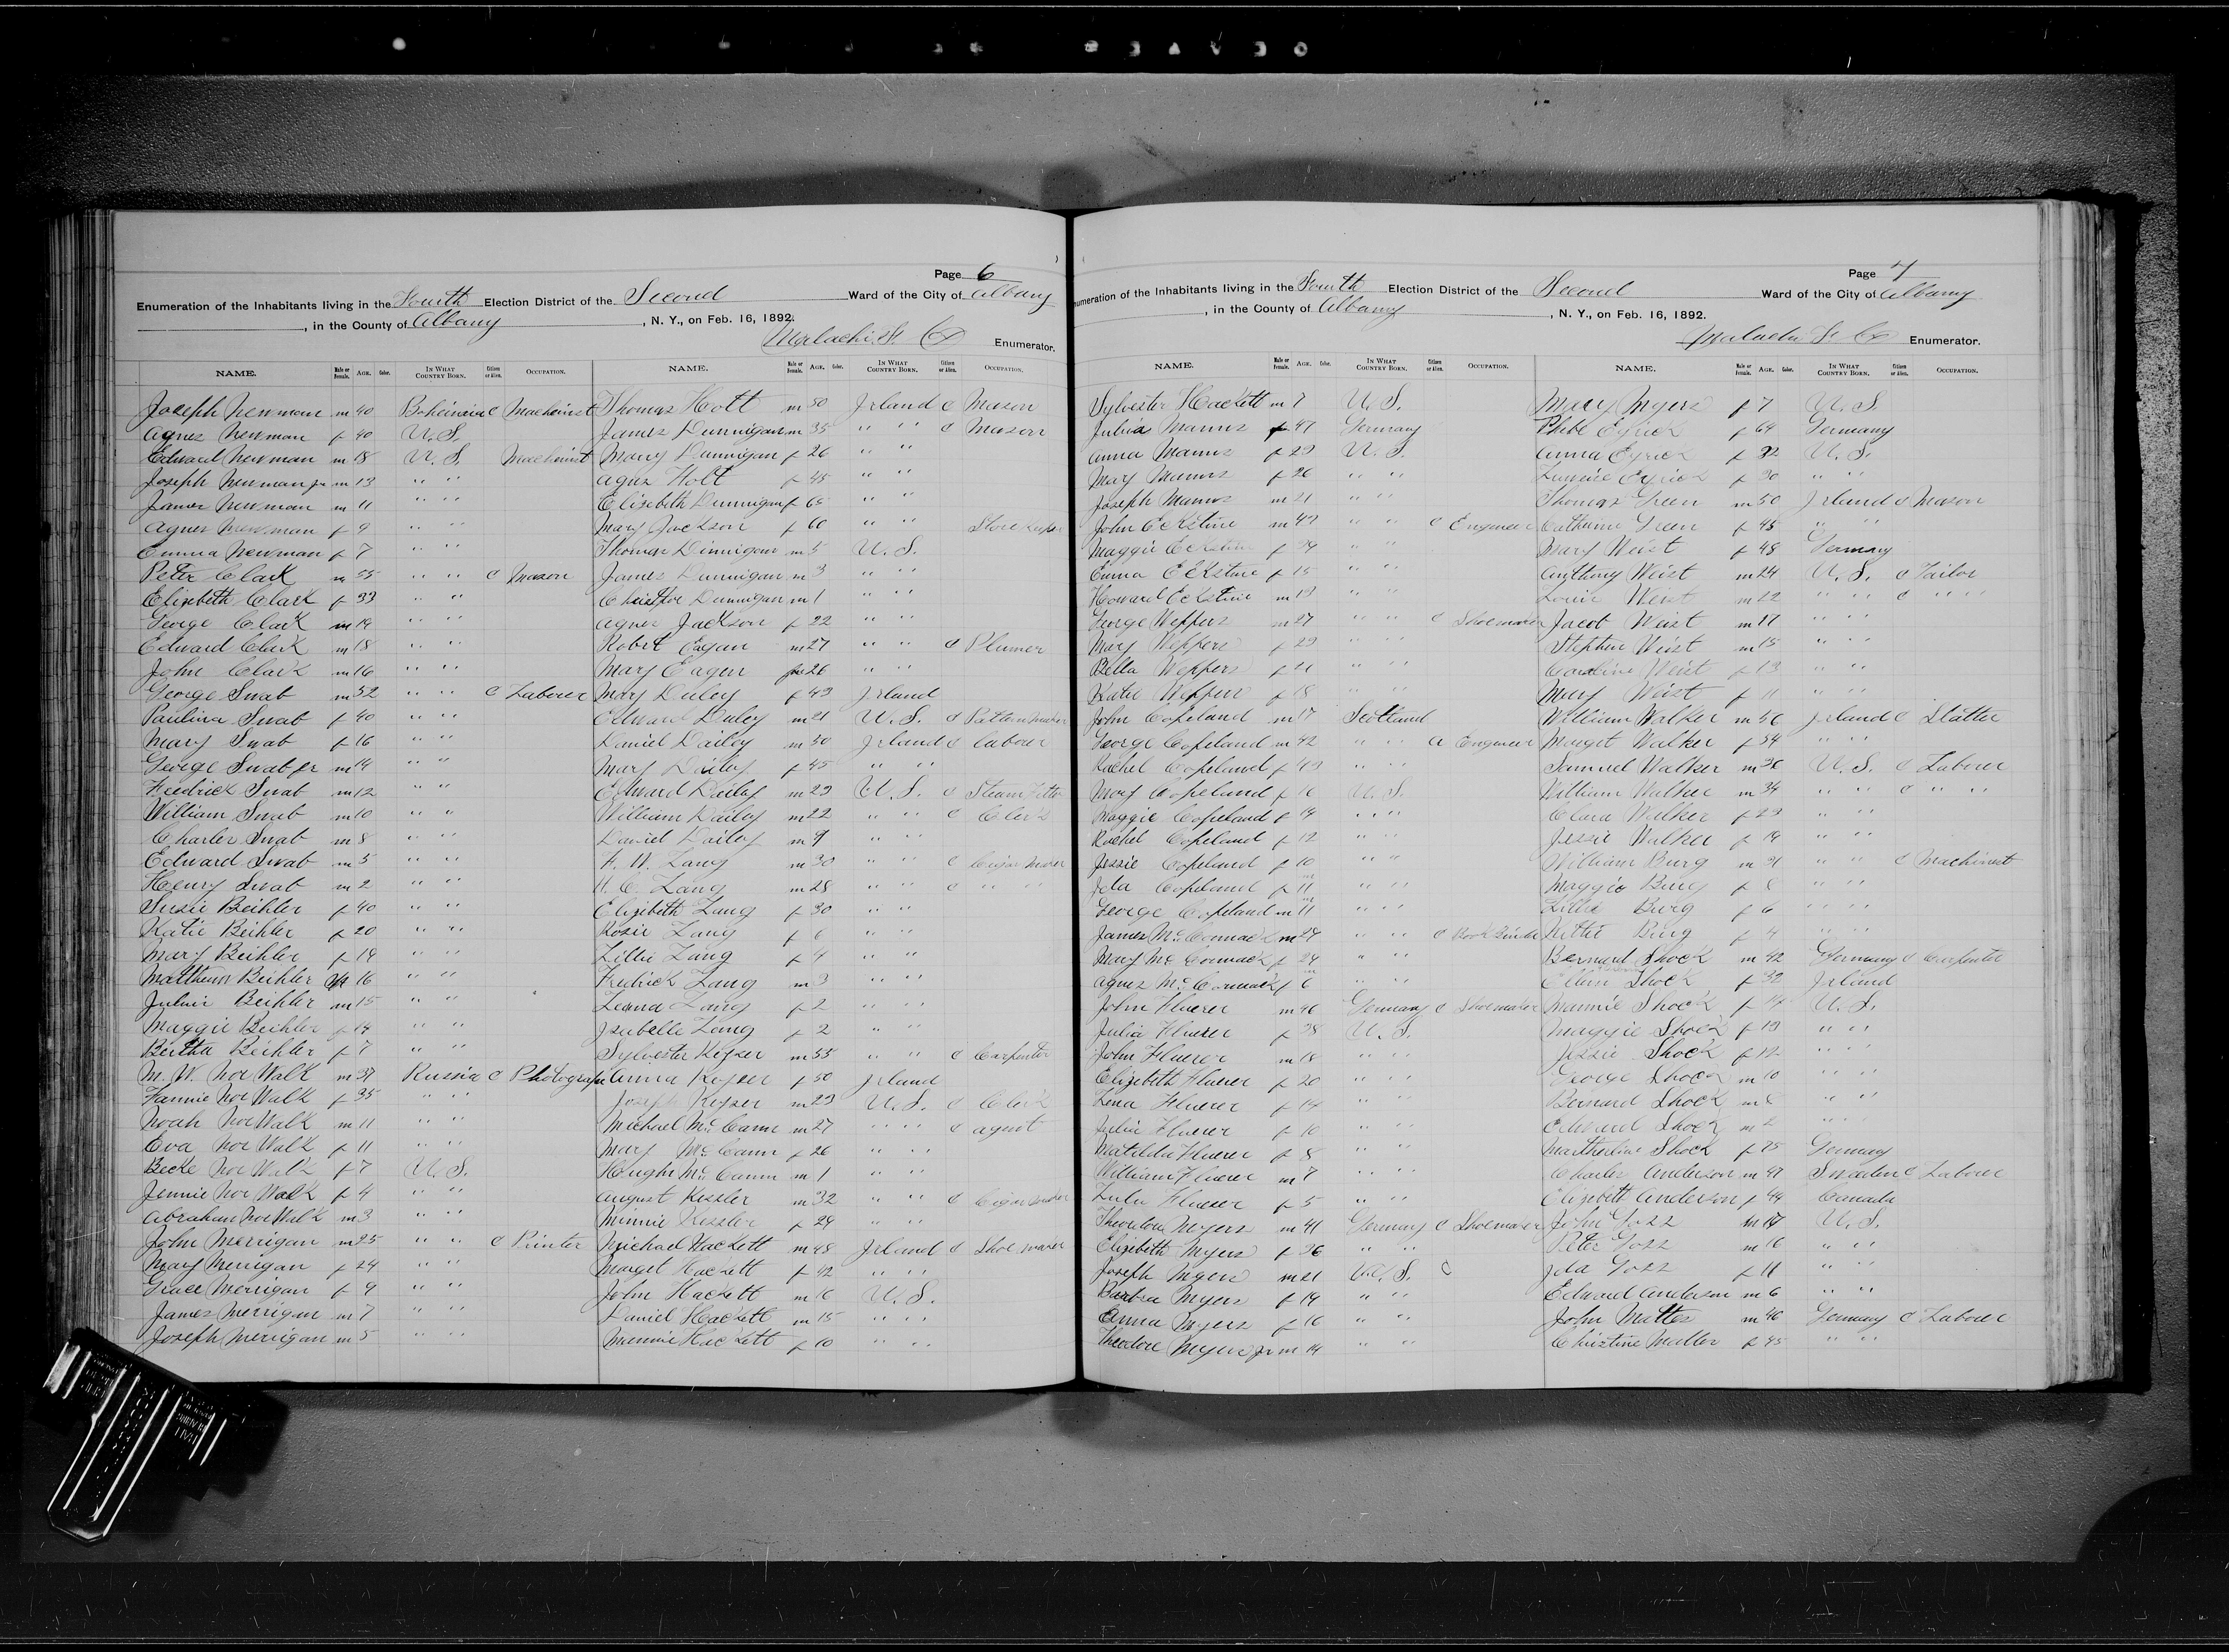 Page 6
Enumeration of the Inhabitants living in the Fourth Election District of the Second Ward of the City of Albany
, in the County of Albany , N. Y., on Feb. 16, 1892.
Enumerator.
NAME. Male or Female. AGE. Color. IN WHAT COUNTRY BORN. Citizen or Alien. OCCUPATION.
Joseph Newman m 40 Bohemia c Machinist
Agnes Newman f 40 U.S.
Edward Newman m 18 U.S. Machinist
Joseph Newman jr m 13 " "
James Newman m 11
Agnes Newman f 9 " "
Emma Newman f 7 " "
Peter Clark m 55 " " c Mason
Elizbeth Clark f 33 " "
George Clark m 19 " "
Edward Clark m 18 " "
John Clark m 16 " "
George Swab m 52 " " c Laborer
Paulina Swab f 40 " "
Mary Swab f 16 " "
George Swab jr m 14 " "
Fredrick Swab m 12 " "
William Swab m 10 " "
Charles Swab m 8 " "
Edward Swab m 5 " "
Henry Swab m 2 " "
Susie Beihler f 40 " "
Katie Beihler f 20 " "
Mary Beihler f 19 " "
Matthew Beihler m 16 " "
Beihler m 15 " "
Maggie Beihler f 14 " "
Bertha Beihler f 7 " "
M. W. Nor Walk m 37 Russia c Photograph
Fannie Nor Walk f 35 " "
Noah Nor Walk m 11 " "
Eva Nor Walk f 11 " "
Becke Nor Walk f 7 U.S.
Jennie Nor Walk f 4 " "
Abraham Nor Walk m 3 " "
John Merrigan m 25 " " c Printer
Mary Merrigan f 24 " "
Grace Merrigan f 9 " "
James Merrigan m 7 " "
Joseph Merrigan m 5 " "
NAME. Male or Female. AGE. Color. IN WHAT COUNTRY BORN. Citizen or Alien. OCCUPATION.
Thomas Holt m 50 Irland c Mason
James Dunnigan m 35 " " c Mason
Mary Dunnigan f 26 " "
Agnes Holt f 45 " "
Elizebeth Dunnigan f 65 " "
Mary Jackson f 60 " " Store Keeper
Thomas Dinnigan m 5 U.S.
James Dunnigan m 3 " "
Dunnigan m 1 " "
Agnes Jackson f 22 " "
Robert Eagan m 27 " " c Plumer
Mary Eagen f 26 " "
Mary Daley f 49 Irland
Edward Daley m 21 U.S. c Pattern Maker
Daniel Dailey m 50 Irland c laborer
Mary Dailey f 45 " "
Edward Dailey m 29 U.S. c Steam Fitter
William Dailey m 22 " " c Clerk
Daniel Dailey m 9 " "
H. W. Lang m 30 " " c Cigar Maker
H. C. Lang m 28 " " c " "
Elizibeth Lang f 30 " "
Rosie Lang f 6 " "
Lillie Lang f 4 " "
Fredrick Lang m 3 " "
Leana Lang f 2 " "
Isabelle Lang f 2 " "
Sylvester Keyser m 55 " " c Carpenter
Anna Keyser f 50 Irland
Joseph Keyser m 29 U.S. c Clerk
Michael McCann m 27 " " c agent
Mary McCann f 26 " "
Hughn McCann m 1 " "
August Kessler m 32 " " c Cigar Maker
Minnie Kessler f 29 " "
Michael Hackett m 48 Irland c Shoe maker
Marget Hackett f 42 " "
John Hackett m 16 U.S.
Daniel Hackett m 15 " "
Mamie Hackett f 10 " "
Page 7
Enumeration of the Inhabitants living in the Fourth Election District of the Second Ward of the City of Albany
, in the County of Albany , N. Y., on Feb. 16, 1892.
Enumerator.
NAME. Male or Female. AGE. Color. IN WHAT COUNTRY BORN. Citizen or Alien. OCCUPATION.
Sylvester Hackett m 7 U.S.
Julia Manns f 47 Germany
Anna Manns f 29 U.S.
Mary Manns f 26 " "
Joseph Manns m 21 " "
John Eckstine m 42 " " c Engineer
Maggie Eckstine f 39 " "
Emma Eckstine f 15 " "
Howard Eckstine m 13 " "
George Weppers m 27 " " c Shoemaker
Mary Weppers f 29 " "
Bella Weppers f 21 " "
Katie Weppers f 18 " "
John Copeland m 17 Scotland
George Copeland m 42 " " a Engineer
Rachel Copeland f 40 " "
Mary Copeland f 16 U.S.
Maggie Copeland f 14 " "
Rachel Copeland f 12 " "
Jessie Copeland f 10 " "
Ida Copeland f 11 " "
George Copeland m 11 " "
James McCormack m 24 " " c Book Binder
Mary McCormack f 24 " "
Agnes McCormack f 6 " "
John Fluerer m 46 Germany c Shoemaker
Julia Fluerer f 38 U.S.
John Fluerer m 18 " "
Elizibeth Fluerer f 20 " "
Lena Fluerer f 14 " "
Julia Fluerer f 10 " "
Matilda Fluerer f 8 " "
William Fluerer m 7 " "
Lulu Fluerer f 5 " "
Theodore Myers m 41 Germany c Shoemaker
Elizibeth Myers f 36 " "
Joseph Myers m 21 U.S. c
Barbra Myers f 19 " "
Anna Myers f 16 " "
Theodore Myers jr m 14 " "
NAME. Male or Female. AGE. Color. IN WHAT COUNTRY BORN. Citizen or Alien. OCCUPATION.
Mary Myers f 7 U.S.
Phebe Eyrick f 64 Germany
Anna Eyrick f 32 U.S.
Eyrick f 30 "
Thomas Green m 50 Irland c Mason
Catherine Green f 45 " "
Mary Weist f 48 Germany
Anthony Weist m 24 U.S. c Tailor
Louie Weist m 22 " " c " "
Jacob Weist m 17 " "
Stephen Weist m 15 " "
Caroline Weist f 13 " "
Mary Weist f 11 " "
William Walker m 56 Irland c Slatter
Marget Walker f 54 " "
Samuel Walker m 36 U.S. c Laborer
William Walker m 34 " " c " "
Clara Walker f 29 " "
Jessie Walker f 19 " "
William Burg m 31 " " c Machinist
Maggie Burg f 8 " "
Lillie Burg f 6 " "
Nettie Burg f 4 " "
Bernard Shock m 42 Germany c Carpenter
Ellen Shock f 32 Irland
Mannie Shock f 14 U.S.
Maggie Shock f 13 " "
Jessie Shock f 12 " "
George Shock m 10 " "
Bernard Shock m 8 " "
Edward Shock m 2 " "
Shock f 75 Germany
Charles Anderson m 47 Swaden c Laborer
Elizibett Anderson f 44 Canada
John Goss m 17 U.S.
Peter Goss m 16 " "
Ida Goss f 11 " "
Edward Anderson m 6 " "
John Matter m 46 Germany c Laborer
Christine Matter f 45 " "